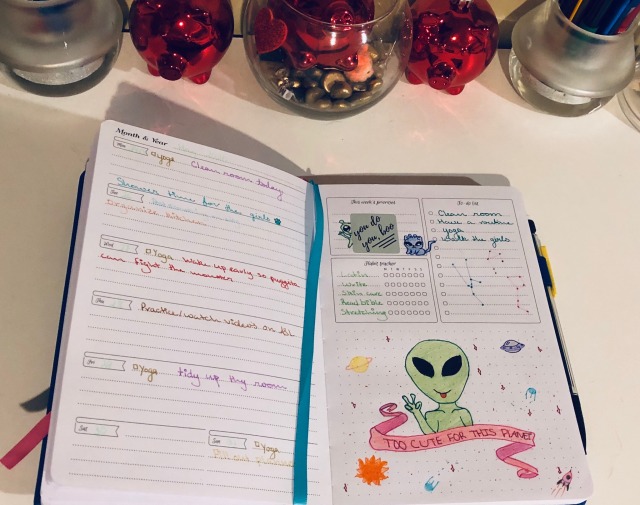 Month & Year
Mon
Yoga
Clean room today
Shower time for the girls
Tue
Wed
Yoga Wake up early so
can fight the monster
Thu
Practice/watch videos on
Fri
Yoga
tidy up thy room
Sat
Sun
Yoga
This week's priorities
you do
you boo
Habit tracker
M T W T F S S
Latin
Write
Skin care
Read bible
Stretching
To-do list
Clean room
Have a routine
yoga
walk the girls
TOO CUTE FOR THIS PLANET